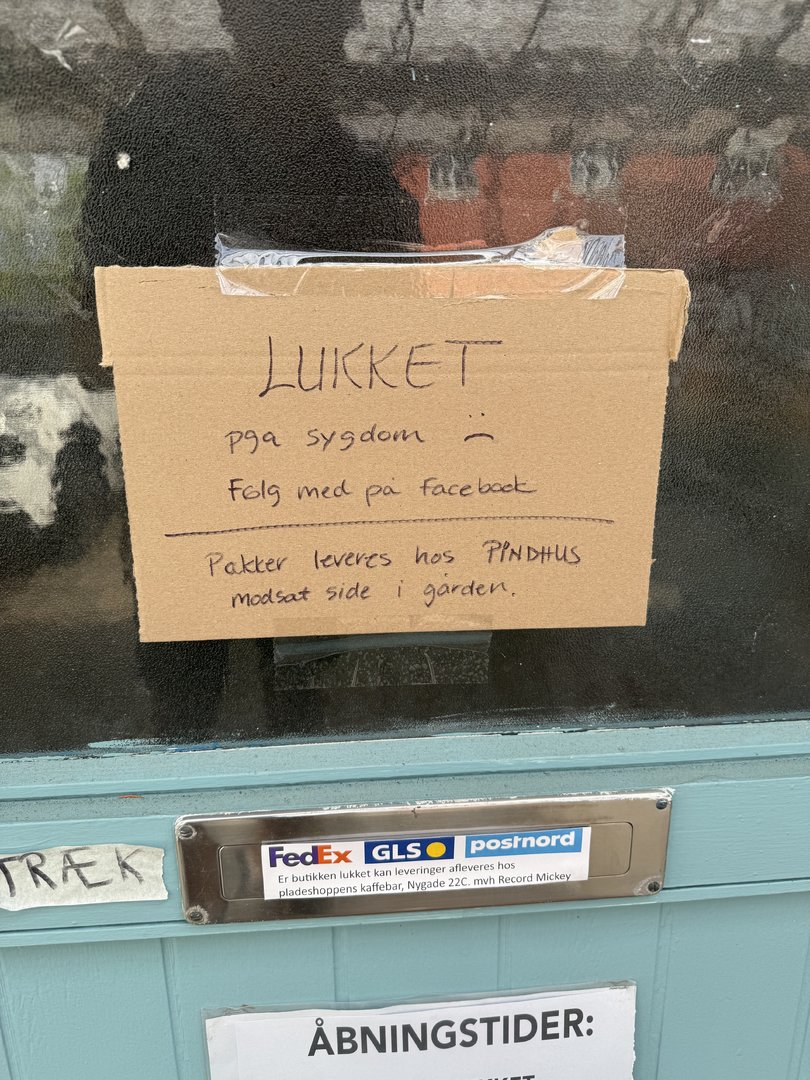 LUKKET
pga sygdom
Følg med på facebook
Pakker leveres hos PINDHUS
modsat side i gården.
TRÆK
FedEx GLS postnord
Er butikken lukket kan leveringer afleveres hos
pladeshoppens kaffebar, Nygade 22C. mvh Record Mickey
ÅBNINGSTIDER: